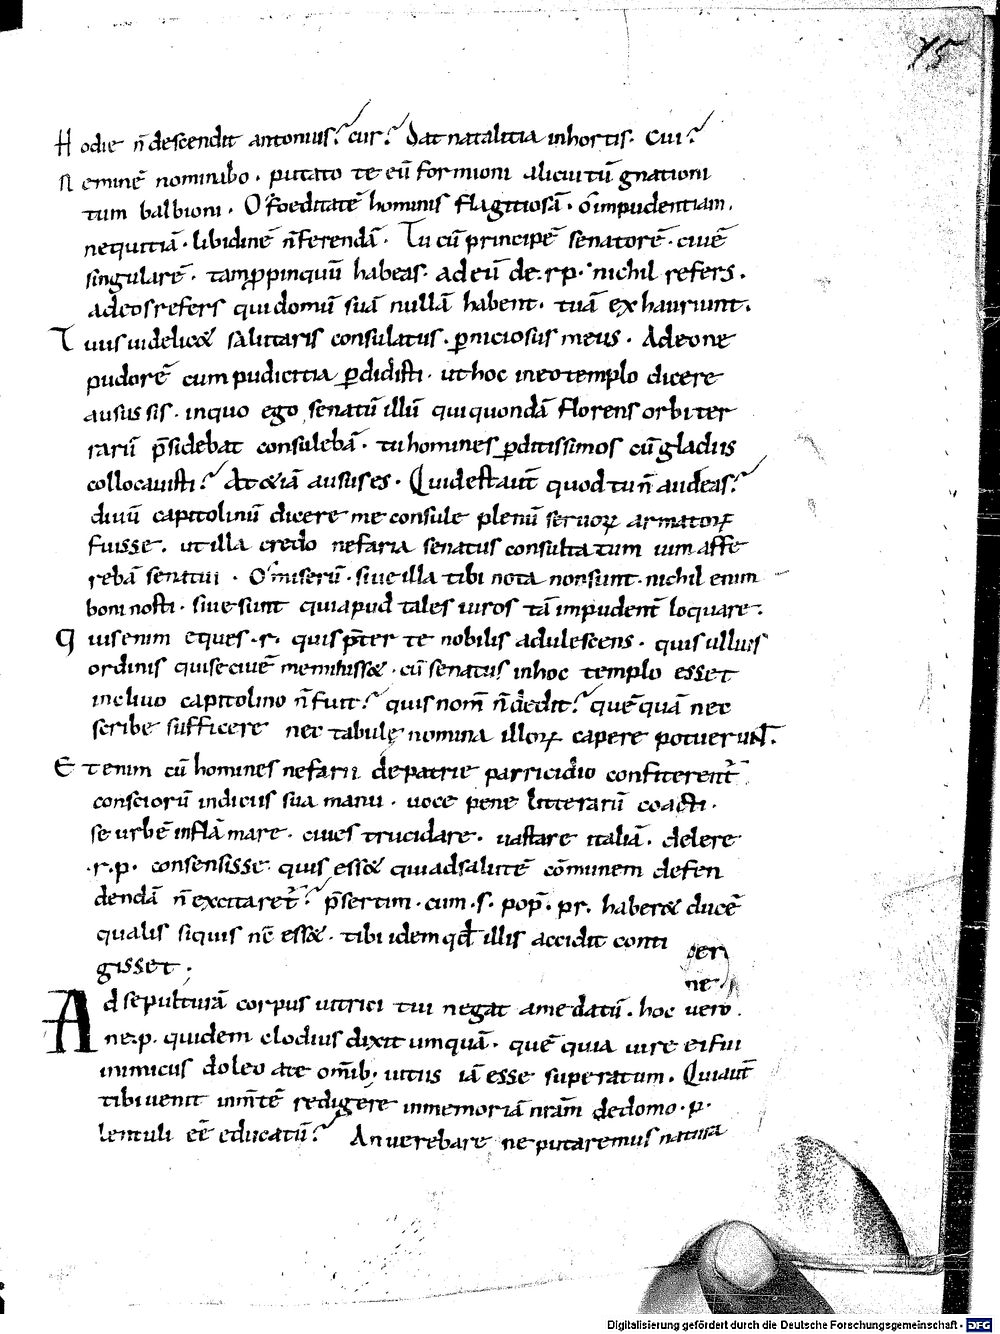 75
Hodie n̄ descendit antonius? cur? Dat natalitia inhortis. Cui?
Neminē nominabo. putato te eū formioni alicui tū gnationi
tum balbioni. O foeditatē hominis flagitiosā. o impudentiam.
nequitiā. libidinē n̄ ferendā. Tu cū principē senatorē. ciuē
singularē. tam ꝓpinquū habeas. ad eū de .r.p. nichil refers.
ad eos refers qui domū suā nullā habent. tuā exhauriunt.
Tuus uidelicet salutaris consulatus. ꝑniciosus meus. Adeone
pudorē cum pudicitia ꝑdidisti. ut hoc in eo templo dicere
ausus sis. in quo ego senatū illū qui quondā florens orbi ter
rarū p̄sidebat consulebā. tu homines ꝑditissimos cū gladiis
collocauisti? At etiā ausus es. Quid est aut̄ quod tu n̄ audeas?
cliuū capitolinū dicere me consule plenū seruoꝝ armatoꝝ
fuisse. ut illa credo nefaria senatus consulta tum uim affe
rebā senatui. O miserū. siue illa tibi nota non sunt. nichil enim
boni nosti. siue sunt qui apud tales uiros tā impudent̄ loquare.
Quis enim eques .r. quis p̄ter te nobilis adulescens. quis ullius
ordinis qui se ciuē meminisset. cū senatus in hoc templo esset
in cliuo capitolino n̄ fuit? quis nom̄ n̄ dedit? quē quā nec
scribe sufficere nec tabulę nomina illoꝝ capere potuerunt.
Etenim cū homines nefarii de patrie parricidio confiterent̄
consciorū indiciis sua manu. uoce pene litterarū coacti.
se urbē inflāmare. ciues trucidare. uastare italiā. delere
.r.p. consensisse. quis esset qui ad salutē cōmunem defen
dendā n̄ excitaret̄? p̄sertim. cum .s. pop̄. pr. haberet ducē
qualis si quis nc̄ esset. tibi idem qd̄ illis accidit conti
gisset.
Ad sepulturā corpus uitrici tui negat a me datū. hoc uero
ne .p. quidem clodius dixit umquā. quē quia iure ei fui
inimicus doleo a te om̄ib. uitiis iā esse superatum. Qui aut̄
tibi uenit in m̄tē redigere in memoriā nr̄am de domo .p.
lentuli eē educatū? An uerebare ne putaremus natura
Digitalisierung gefördert durch die Deutsche Forschungsgemeinschaft - DFG